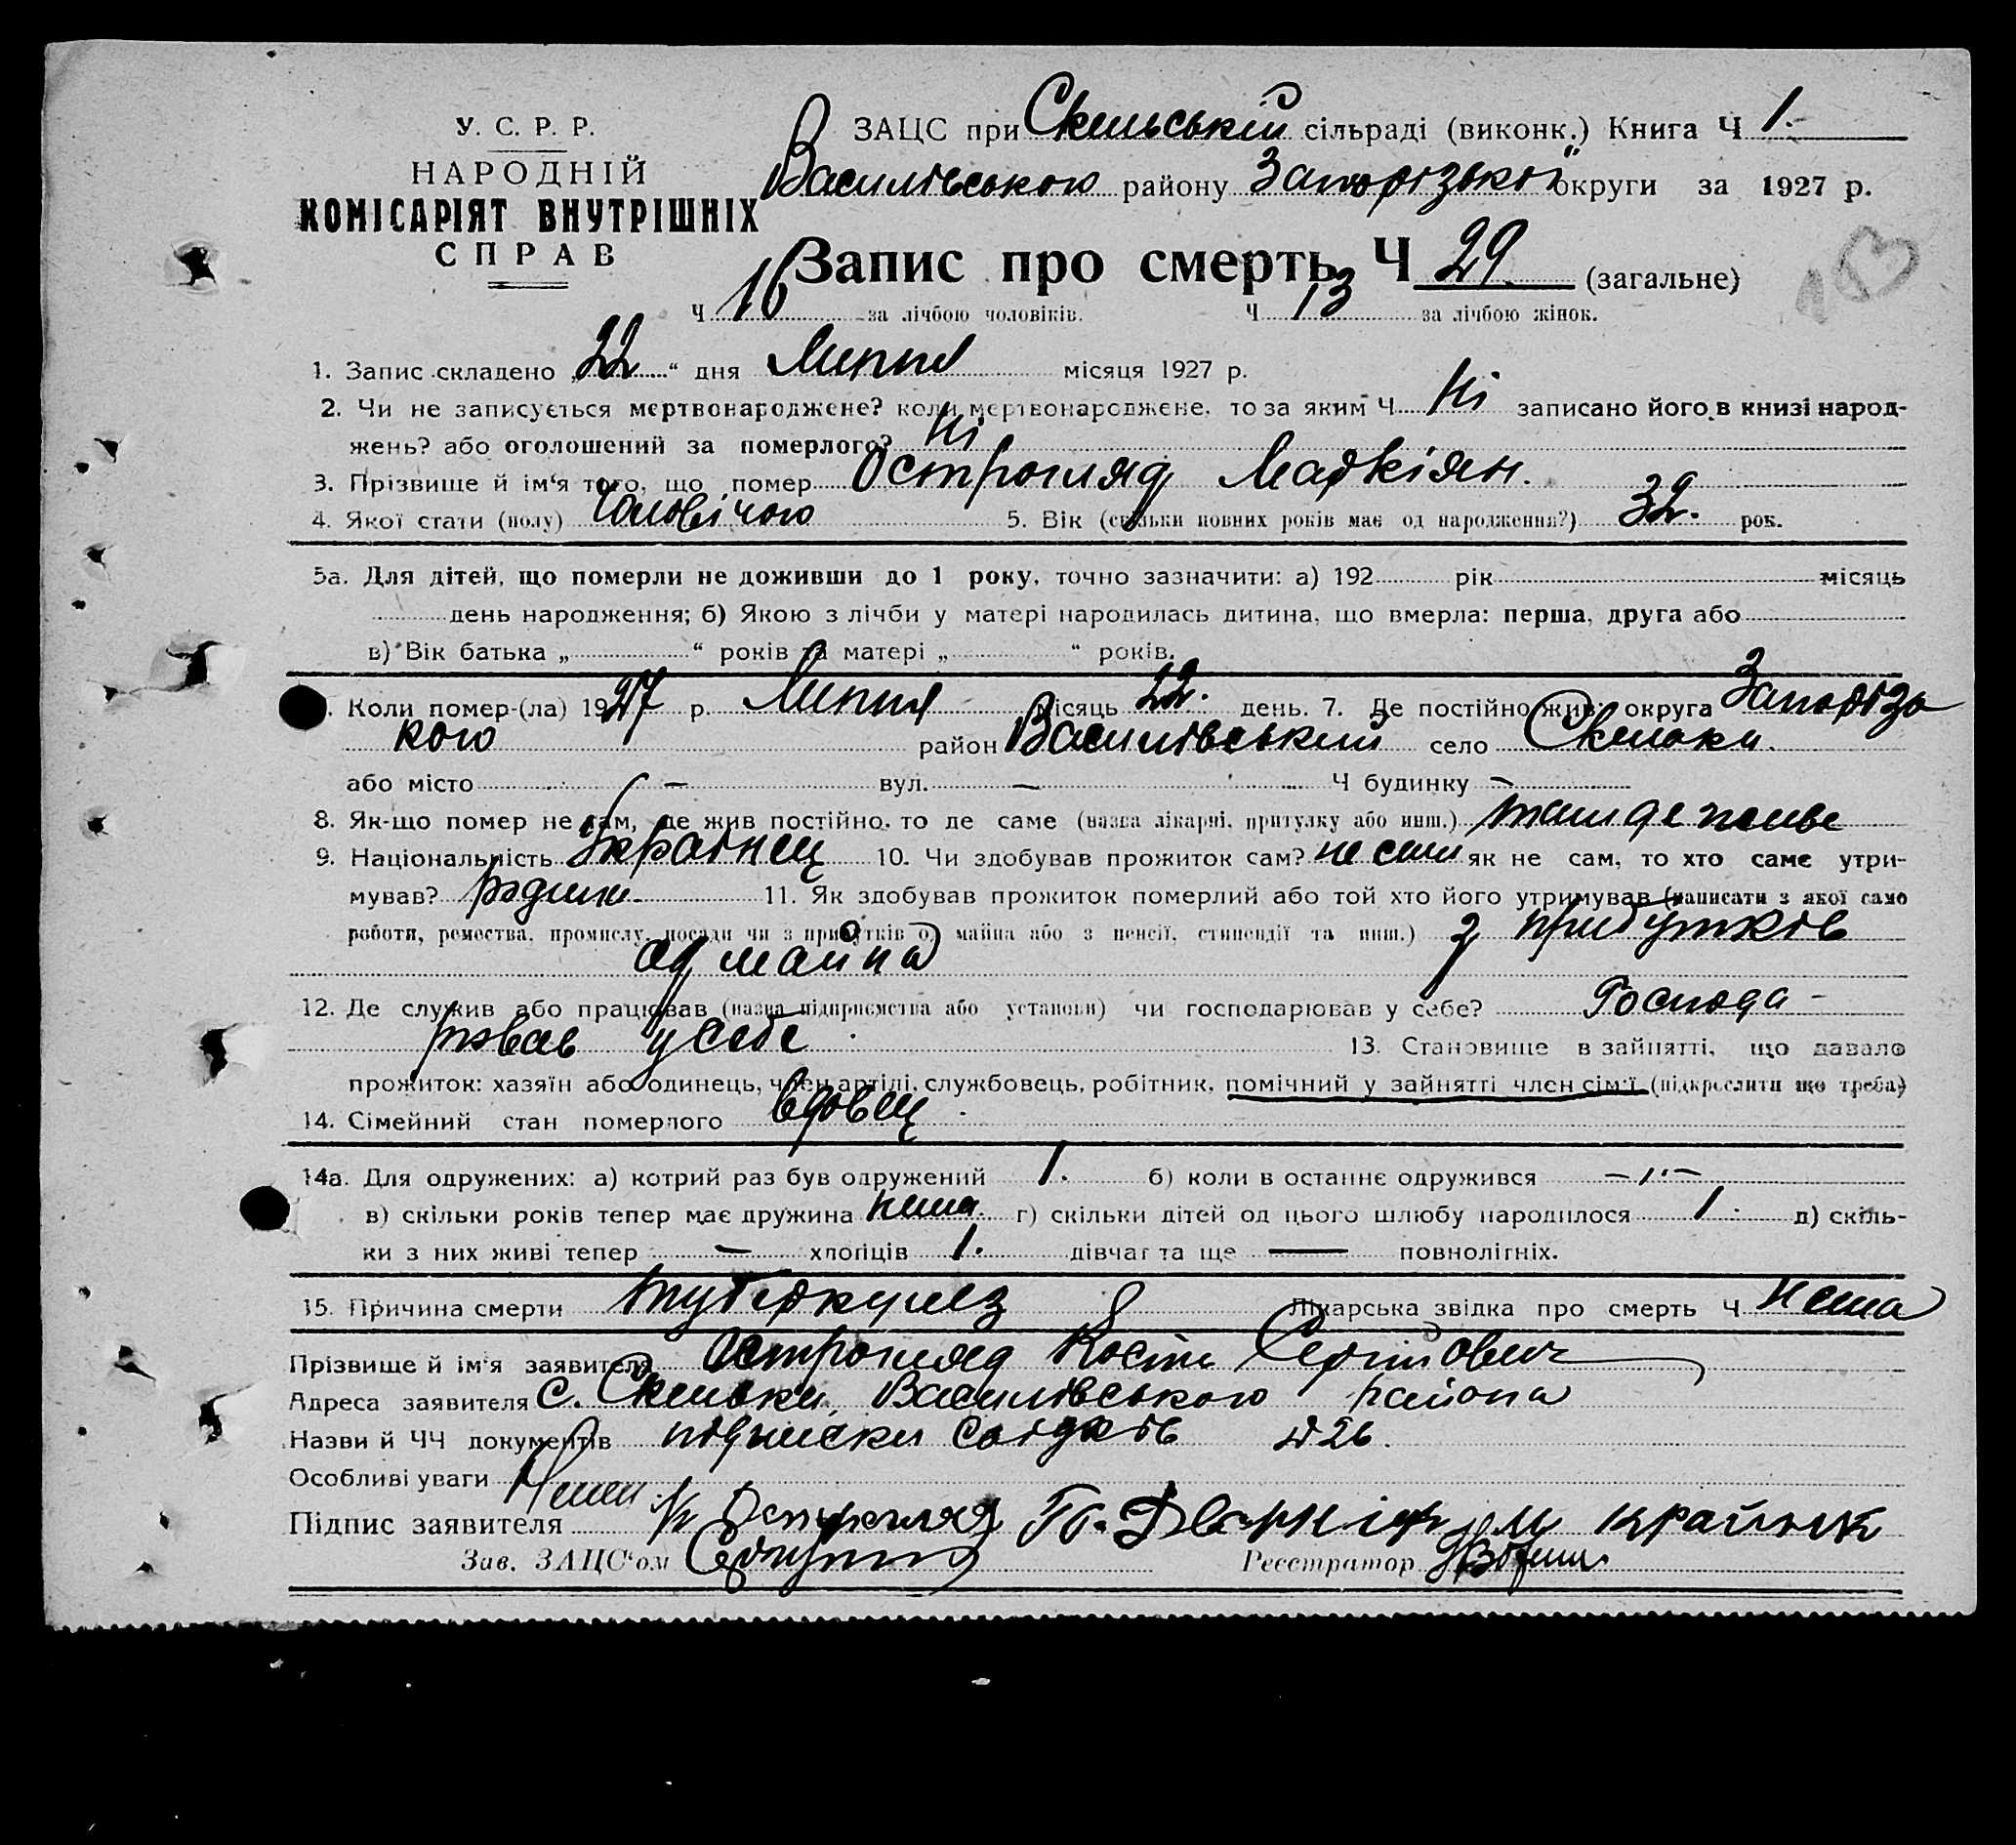 У. С. Р. Р.
НАРОДНІЙ
КОМІСАРІЯТ ВНУТРІШНІХ
СПРАВ
ЗАЦС при Скельській сільраді (виконк.) Книга Ч 1.
Василівського району Запорізької округи за 1927 р.
Запис про смерть Ч 29 (загальне)
153
Ч 16 за лічбою чоловіків. Ч 13 за лічбою жінок.
1. Запис складено „22“ дня Липня місяця 1927 р.
2. Чи не записується мертвонароджене? коли мертвонароджене, то за яким Ч Ні записано його в книзі народ-
жень? або оголошений за померлого? Ні
3. Прізвище й ім'я того, що помер Остропляд Маркіян.
4. Якої стати (полу) Чоловічого 5. Вік (скільки повних років має од народження?) 32. рок.
5а. Для дітей, що померли не доживши до 1 року, точно зазначити: а) 192 рік місяць
день народження; б) Якою з лічби у матері народилась дитина, що вмерла: перша, друга або
в) Вік батька „ “ років та матері „ “ років.
Коли помер-(ла) 1927 р. Липня місяць 22. день. 7. Де постійно жив округа Запорізь
кого район Василівський село Скельки.
або місто — вул. — Ч будинку —
8. Як-що помер не там, де жив постійно, то де саме (назва лікарні, притулку або инш.) там де живе
9. Національність Українец 10. Чи здобував прожиток сам? не сам як не сам, то хто саме утри-
мував? родини. 11. Як здобував прожиток померлий або той хто його утримував (написати з якої само
роботи, ремества, промислу, посади чи з прибутків од майна або з пенсії, стипендії та инш.) з прибутків
од майна
12. Де служив або працював (назва підприємства або установи) чи господарював у себе? Господа-
рював у себе. 13. Становище в зайнятті, що давало
прожиток: хазяїн або одинець, член артілі, службовець, робітник, помічний у зайнятті член сім'ї (підкреслити що треба)
14. Сімейний стан померлого вдовец.
14а. Для одружених: а) котрий раз був одружений 1. б) коли в останнє одружився —„—
в) скільки років тепер має дружина нема. г) скільки дітей од цього шлюбу народилося 1. д) скіль-
ки з них живі тепер — хлопців 1. дівчат та ще — повнолітніх.
15. Причина смерти туберкулез Лікарська звідка про смерть Ч нема
Прізвище й ім'я заявителя Остропляд Кость Сергійович
Адреса заявителя с. Скельки, Василівського района
Назви й ЧЧ документів підписки свідків № 26.
Особливі уваги Нема.
Підпис заявителя Остропляд крайнік
Зав. ЗАЦС'ом Реєстратор